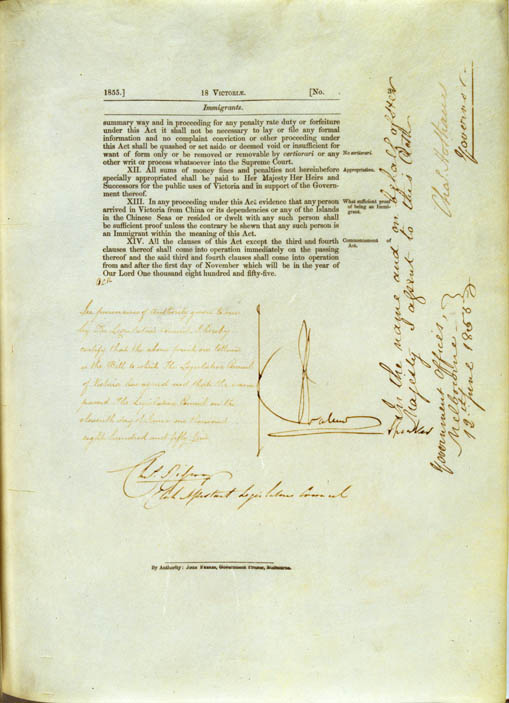 1855.] 18 VICTORIÆ. [No.
Immigrants.
summary way and in proceeding for any penalty rate duty or forfeiture
under this Act it shall not be necessary to lay or file any formal
information and no complaint conviction or other proceeding under
this Act shall be quashed or set aside or deemed void or insufficient for
want of form only or be removed or removable by certiorari or any
other writ or process whatsoever into the Supreme Court.
No certiorari.
XII. All sums of money fines and penalties not hereinbefore
specially appropriated shall be paid to Her Majesty Her Heirs and
Successors for the public uses of Victoria and in support of the Govern-
ment thereof.
Appropriation.
XIII. In any proceeding under this Act evidence that any person
arrived in Victoria from China or its dependencies or any of the Islands
in the Chinese Seas or resided or dwelt with any such person shall
be sufficient proof unless the contrary be shewn that any such person is
an Immigrant within the meaning of this Act.
What sufficient proof
of being an Immi-
grant.
XIV. All the clauses of this Act except the third and fourth
clauses thereof shall come into operation immediately on the passing
thereof and the said third and fourth clauses shall come into operation
from and after the first day of November which will be in the year of
Our Lord One thousand eight hundred and fifty-five.
Commencement of
Act.
In pursuance of Authority given to me
by The Legislative Council I hereby
certify that the above
is the Bill to which The Legislative Council
of Victoria has agreed and that the same
passed The Legislative Council on the
eleventh day of June one thousand
eight hundred and fifty five
Speaker
Clerk Assistant Legislative Council
In the name and on behalf of Her
Majesty I assent to this Act
Chas. Hotham
Governor.
Government Offices,
Melbourne
12th June 1855
By Authority: JOHN FERRES, Government Printer, Melbourne.